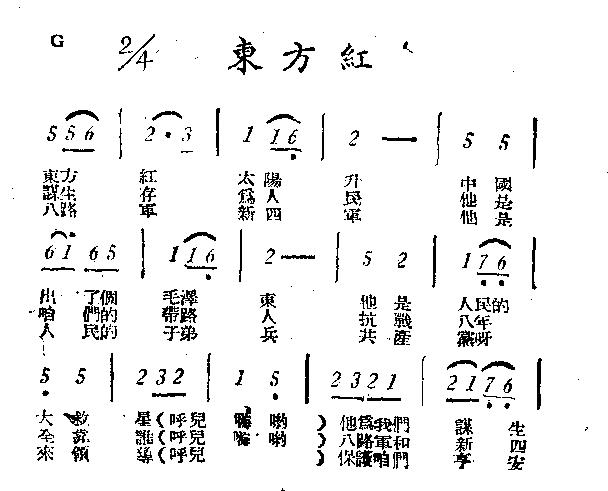 G 2/4 東方紅
5 5 6 | 2 · 3 | 1 1 6 | 2 — | 5 5
東方 紅 太陽 升 中國
謀生 存 爲人 民 他是
八路 軍 新四 軍 他是
6 1 6 5 | 1 1 6 | 2 — | 5 2 | 1 7 6
出了個 毛澤 東 他是 人民的
咱們的 帶路 人 抗戰 八年
人民的 子弟 兵 共產 黨呀
5 5 | 2 3 2 | 1 5 | 2 3 2 1 | 2 1 7 6
大救 星(呼兒 嗨喲)他爲我們 謀生
全靠 誰(呼兒 嗨喲)八路軍和 新四
來領 導(呼兒 嗨喲)保護咱們 享安